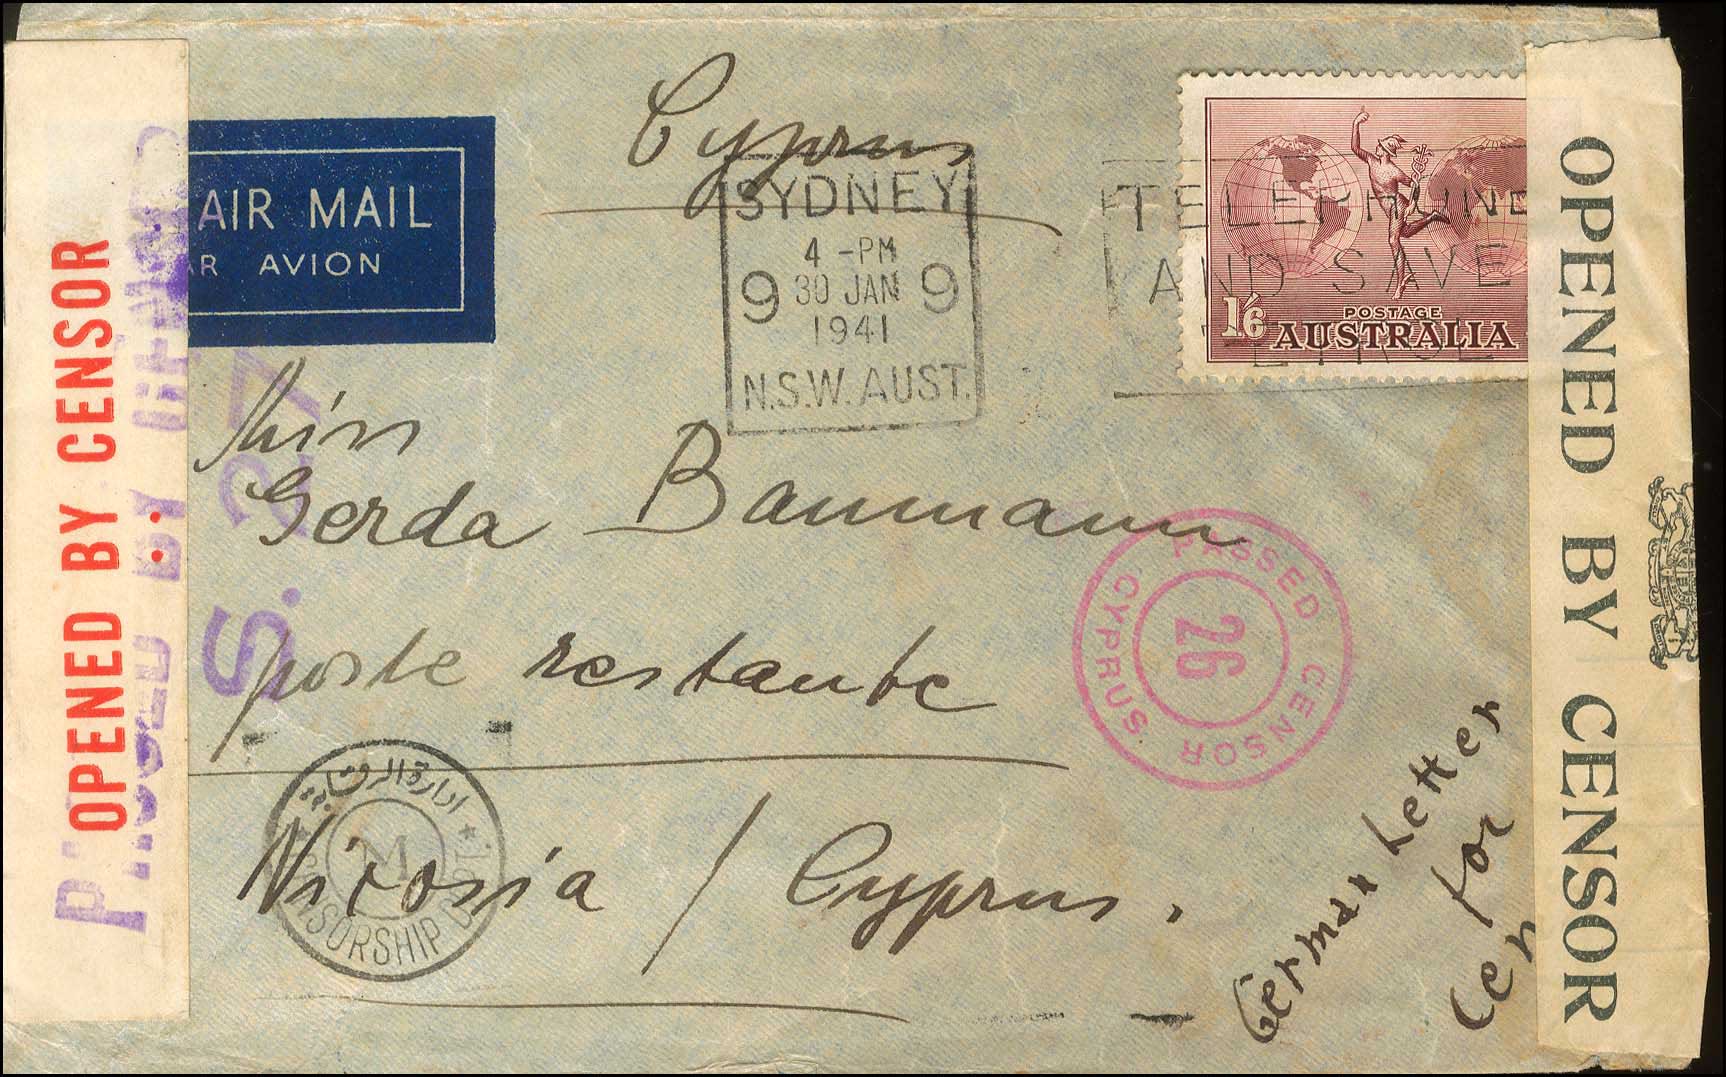 Cyprus
AIR MAIL
AR AVION
SYDNEY
4 -PM
9 30 JAN 9
1941
N.S.W. AUST.
TELEPHONE
AND SAVE
TIME
1/6
POSTAGE
AUSTRALIA
OPENED BY CENSOR
S. 27
Miss
Gerda Baumann
poste restante
Nicosia / Cyprus.
PASSED CENSOR
CYPRUS
26
ادارة الرقابة
M
CENSORSHIP DEPT.
German Letter
for
Cen
OPENED BY CENSOR